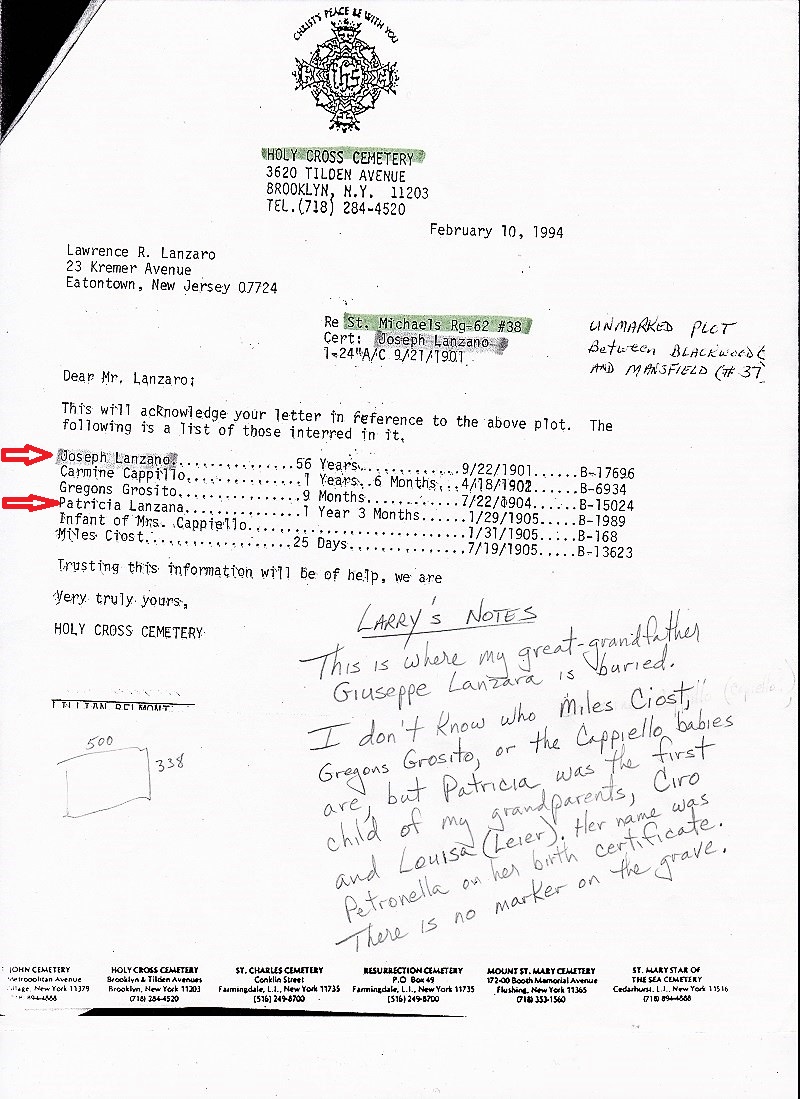 CHRIST'S PEACE BE WITH YOU
ihs
HOLY CROSS CEMETERY
3620 TILDEN AVENUE
BROOKLYN, N.Y. 11203
TEL.(718) 284-4520
February 10, 1994
Lawrence R. Lanzaro
23 Kremer Avenue
Eatontown, New Jersey 07724
Re St. Michaels Rg-62 #38
Cert: Joseph Lanzano
1-24"A/C 9/21/1901
UNMARKED PLOT
Between BLACKWOOD
AND MANSFIELD (#37)
Dear Mr. Lanzaro;
This will acknowledge your letter in reference to the above plot. The
following is a list of those interred in it,
Joseph Lanzano..............56 Years...........9/22/1901......B-17696
Carmine Cappillo............1 Years. 6 Months..4/18/1902......B-6934
Gregons Grosito.............9 Months...........7/22/0904......B-15024
Patricia Lanzana............1 Year 3 Months....1/29/1905......B-1989
Infant of Mrs. Cappiello.......................1/31/1905......B-168
Miles Ciost.................25 Days............7/19/1905......B-13623
Trusting this information will be of help, we are
Very truly yours,
HOLY CROSS CEMETERY
LARRY'S NOTES
This is where my great-grandfather
Giuseppe Lanzara is buried.
I don't know who Miles Ciost,
Gregons Grosito, or the Cappiello babies
are, but Patricia was the first
child of my grandparents, Ciro
and Louisa (Leier). Her name was
Petronella on her birth certificate.
There is no marker on the grave.
500
338
JOHN CEMETERY
Metropolitan Avenue
Village, New York 11379
894-4888
HOLY CROSS CEMETERY
Brooklyn & Tilden Avenues
Brooklyn, New York 11203
(718) 284-4520
ST. CHARLES CEMETERY
Conklin Street
Farmingdale, L.I., New York 11735
(516) 249-8700
RESURRECTION CEMETERY
P.O. Box 49
Farmingdale, L.I., New York 11735
(516) 249-8700
MOUNT ST. MARY CEMETERY
172-00 Booth Memorial Avenue
Flushing, New York 11365
(718) 353-1560
ST. MARY STAR OF
THE SEA CEMETERY
Cedarhurst, L.I., New York 11516
(718) 894-4888